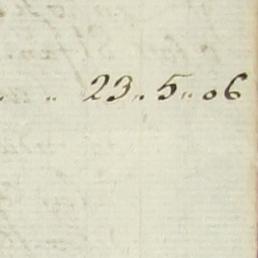 23 ,, 5 ,, 06